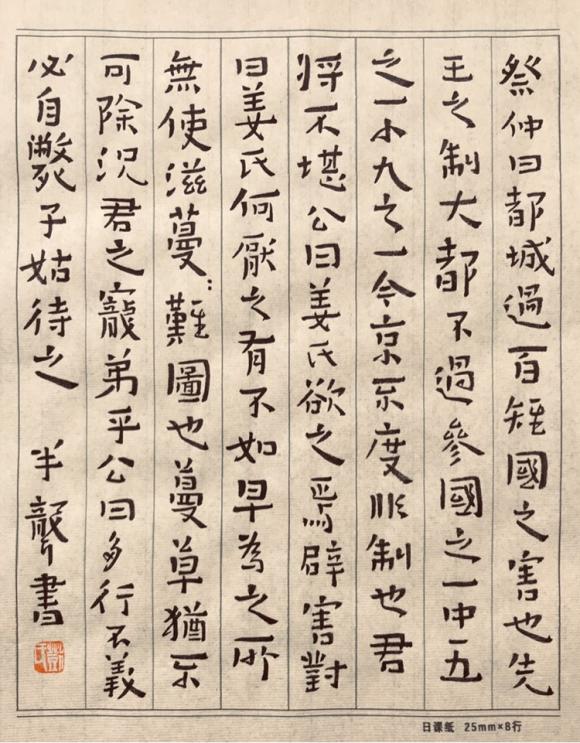 祭仲曰都城過百雉國之害也先
王之制大都不過參國之一中五
之一小九之一今京不度非制也君
將不堪公曰姜氏欲之焉辟害對
曰姜氏何厭之有不如早為之所
無使滋蔓：難圖也蔓草猶不
可除況君之寵弟乎公曰多行不義
必自斃子姑待之 半聾書
日课纸 25mm×8行